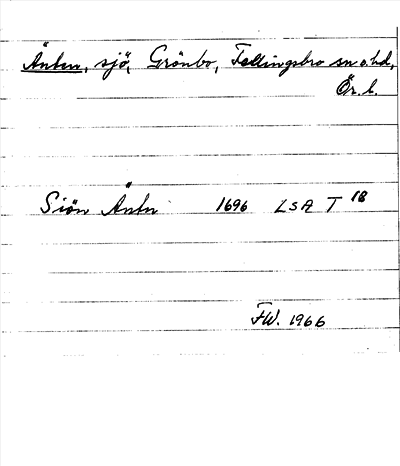 Änten, sjö, Grönbo, Fellingsbro sn o. hd,
Ör. l.
Siön Änten 1696 LSA T 18
FW. 1966